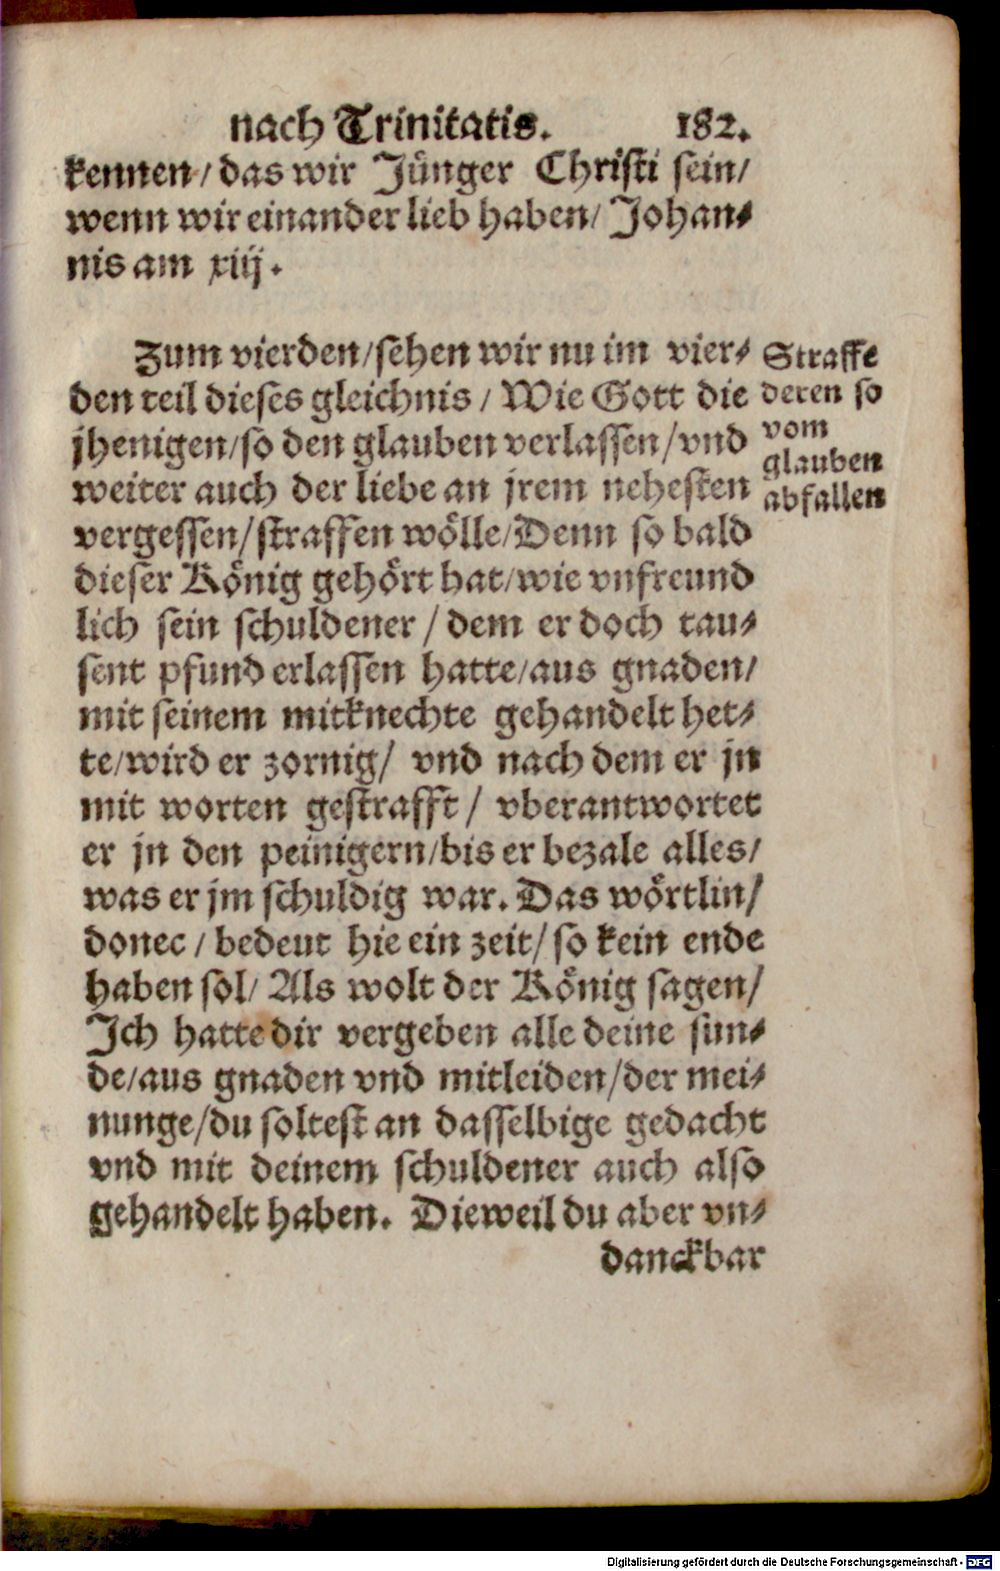 nach Trinitatis. 182.
kennen/ das wir Jünger Christi sein/
wenn wir einander lieb haben/ Johan⸗
nis am xiij.
Zum vierden/sehen wir nu im vier⸗
den teil dieses gleichnis / Wie Gott die
jhenigen/so den glauben verlassen/vnd
weiter auch der liebe an jrem nehesten
vergessen/straffen wölle/Denn so bald
dieser König gehört hat/wie vnfreund
lich sein schuldener / dem er doch tau⸗
sent pfund erlassen hatte/aus gnaden/
mit seinem mitknechte gehandelt het⸗
te/wird er zornig/ vnd nach dem er jn
mit worten gestrafft / vberantwortet
er jn den peinigern/bis er bezale alles/
was er jm schuldig war. Das wörtlin/
donec / bedeut hie ein zeit/ so kein ende
haben sol/ Als wolt der König sagen/
Ich hatte dir vergeben alle deine sun⸗
de/aus gnaden vnd mitleiden/der mei⸗
nunge/du soltest an dasselbige gedacht
vnd mit deinem schuldener auch also
gehandelt haben. Dieweil du aber vn⸗
danckbar
Straffe
deren so
vom
glauben
abfallen
Digitalisierung gefördert durch die Deutsche Forschungsgemeinschaft - DFG